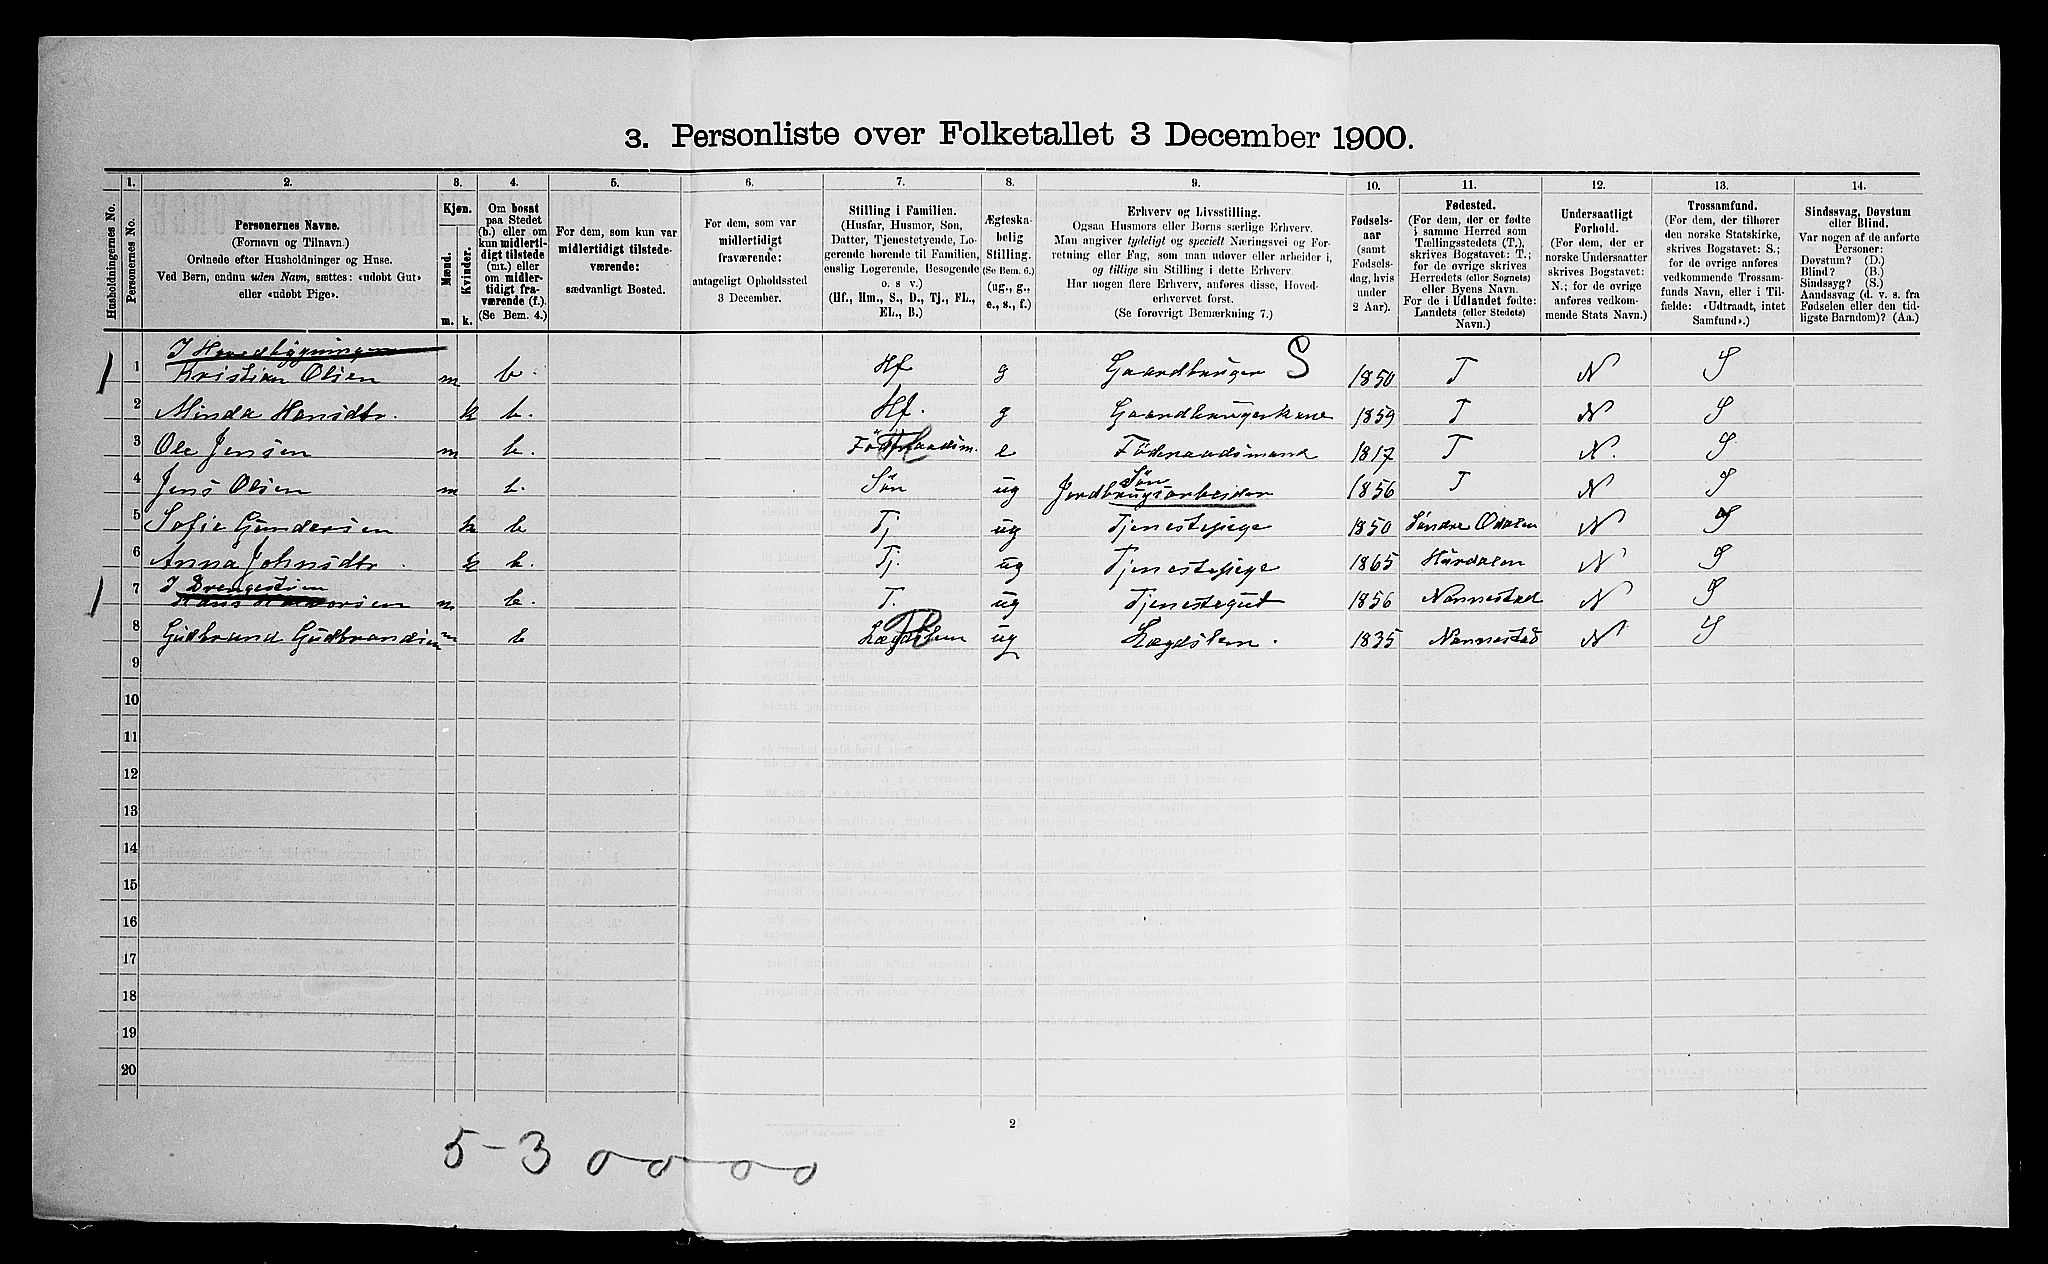 3. Personliste over Folketallet 3 December 1900.
Husholdningernes No.
1. Personernes No.
2. Personernes Navne. (Fornavn og Tilnavn.) Ordnede efter Husholdninger og Huse. Ved Børn, endnu uden Navn, sættes: «udøbt Gut» eller «udøbt Pige».
3. Kjøn. Mænd. m. Kvinder. k.
4. Om bosat paa Stedet (b.) eller om kun midlertidigt tilstede (mt.) eller om midlertidigt fraværende (f.). (Se Bem. 4.)
5. For dem, som kun var midlertidigt tilstedeværende: sædvanligt Bosted.
6. For dem, som var midlertidigt fraværende: antageligt Opholdssted 3 December.
7. Stilling i Familien. (Husfar, Husmor, Søn, Datter, Tjenestetyende, Logerende hørende til Familien, enslig Logerende, Besøgende o. s v.) (Hf., Hm., S., D., Tj., FL., EL., B.)
8. Ægteskabelig Stilling. (Se Bem. 6.) (ug., g., e., s., f.)
9. Erhverv og Livsstilling. Ogsaa Husmors eller Børns særlige Erhverv. Man angiver tydeligt og specielt Næringsvei og Forretning eller Fag, som man udøver eller arbeider i, og tillige sin Stilling i dette Erhverv. Har nogen flere Erhverv, anføres disse, Hovederhvervet først. (Se forøvrigt Bemærkning 7.)
10. Fødselsaar (samt Fødselsdag, hvis under 2 Aar).
11. Fødested. (For dem, der er fødte i samme Herred som Tællingsstedets (T.), skrives Bogstavet: T.; for de øvrige skrives Herredets (eller Sognets) eller Byens Navn. For de i Udlandet fødte: Landets (eller Stedets) Navn.)
12. Undersaatligt Forhold. (For dem, der er norske Undersaatter skrives Bogstavet: N.; for de øvrige anføres vedkommende Stats Navn.)
13. Trossamfund. (For dem, der tilhører den norske Statskirke, skrives Bogstavet: S.; for de øvrige anføres vedkommende Trossamfunds Navn, eller i Tilfælde: «Udtraadt, intet Samfund».)
14. Sindssvag, Døvstum eller Blind. Var nogen af de anførte Personer: Døvstum? (D.) Blind? (B.) Sindssyg? (S.) Aandssvag (d. v. s. fra Fødselen eller den tidligste Barndom)? (Aa.)
I Hovedbygningen
1 1 Kristian Olsen m b. Hf g Gaardbruger S 1850 T N S
2 Minda Hansdtr. k b. Hf. g Gaardbrugerkone 1859 T N S
3 Ole Jensen m b. Föderaadsm. e Föderaadsmand 1817 T N. S
4 Jens Olsen m b. Søn ug Søn Jordbrugsarbeider 1856 T N S
5 Sofie Gundersen k b Tj ug Tjenestepige 1850 Søndre Odalen N S
6 Anna Johnsdtr. k b. Tj. ug Tjenestepige 1865 Hurdalen N S
I Drengestuen
1 7 Hans Halvorsen m b. T. ug Tjenestegut 1856 Nannestad N S
8 Gudbrand Gudbrandsen m b Lægdslem ug Lægdslem. 1835 Nannestad N S
9
10
11
12
13
14
15
16
17
18
19
20
2
5-3 0 0 0 0